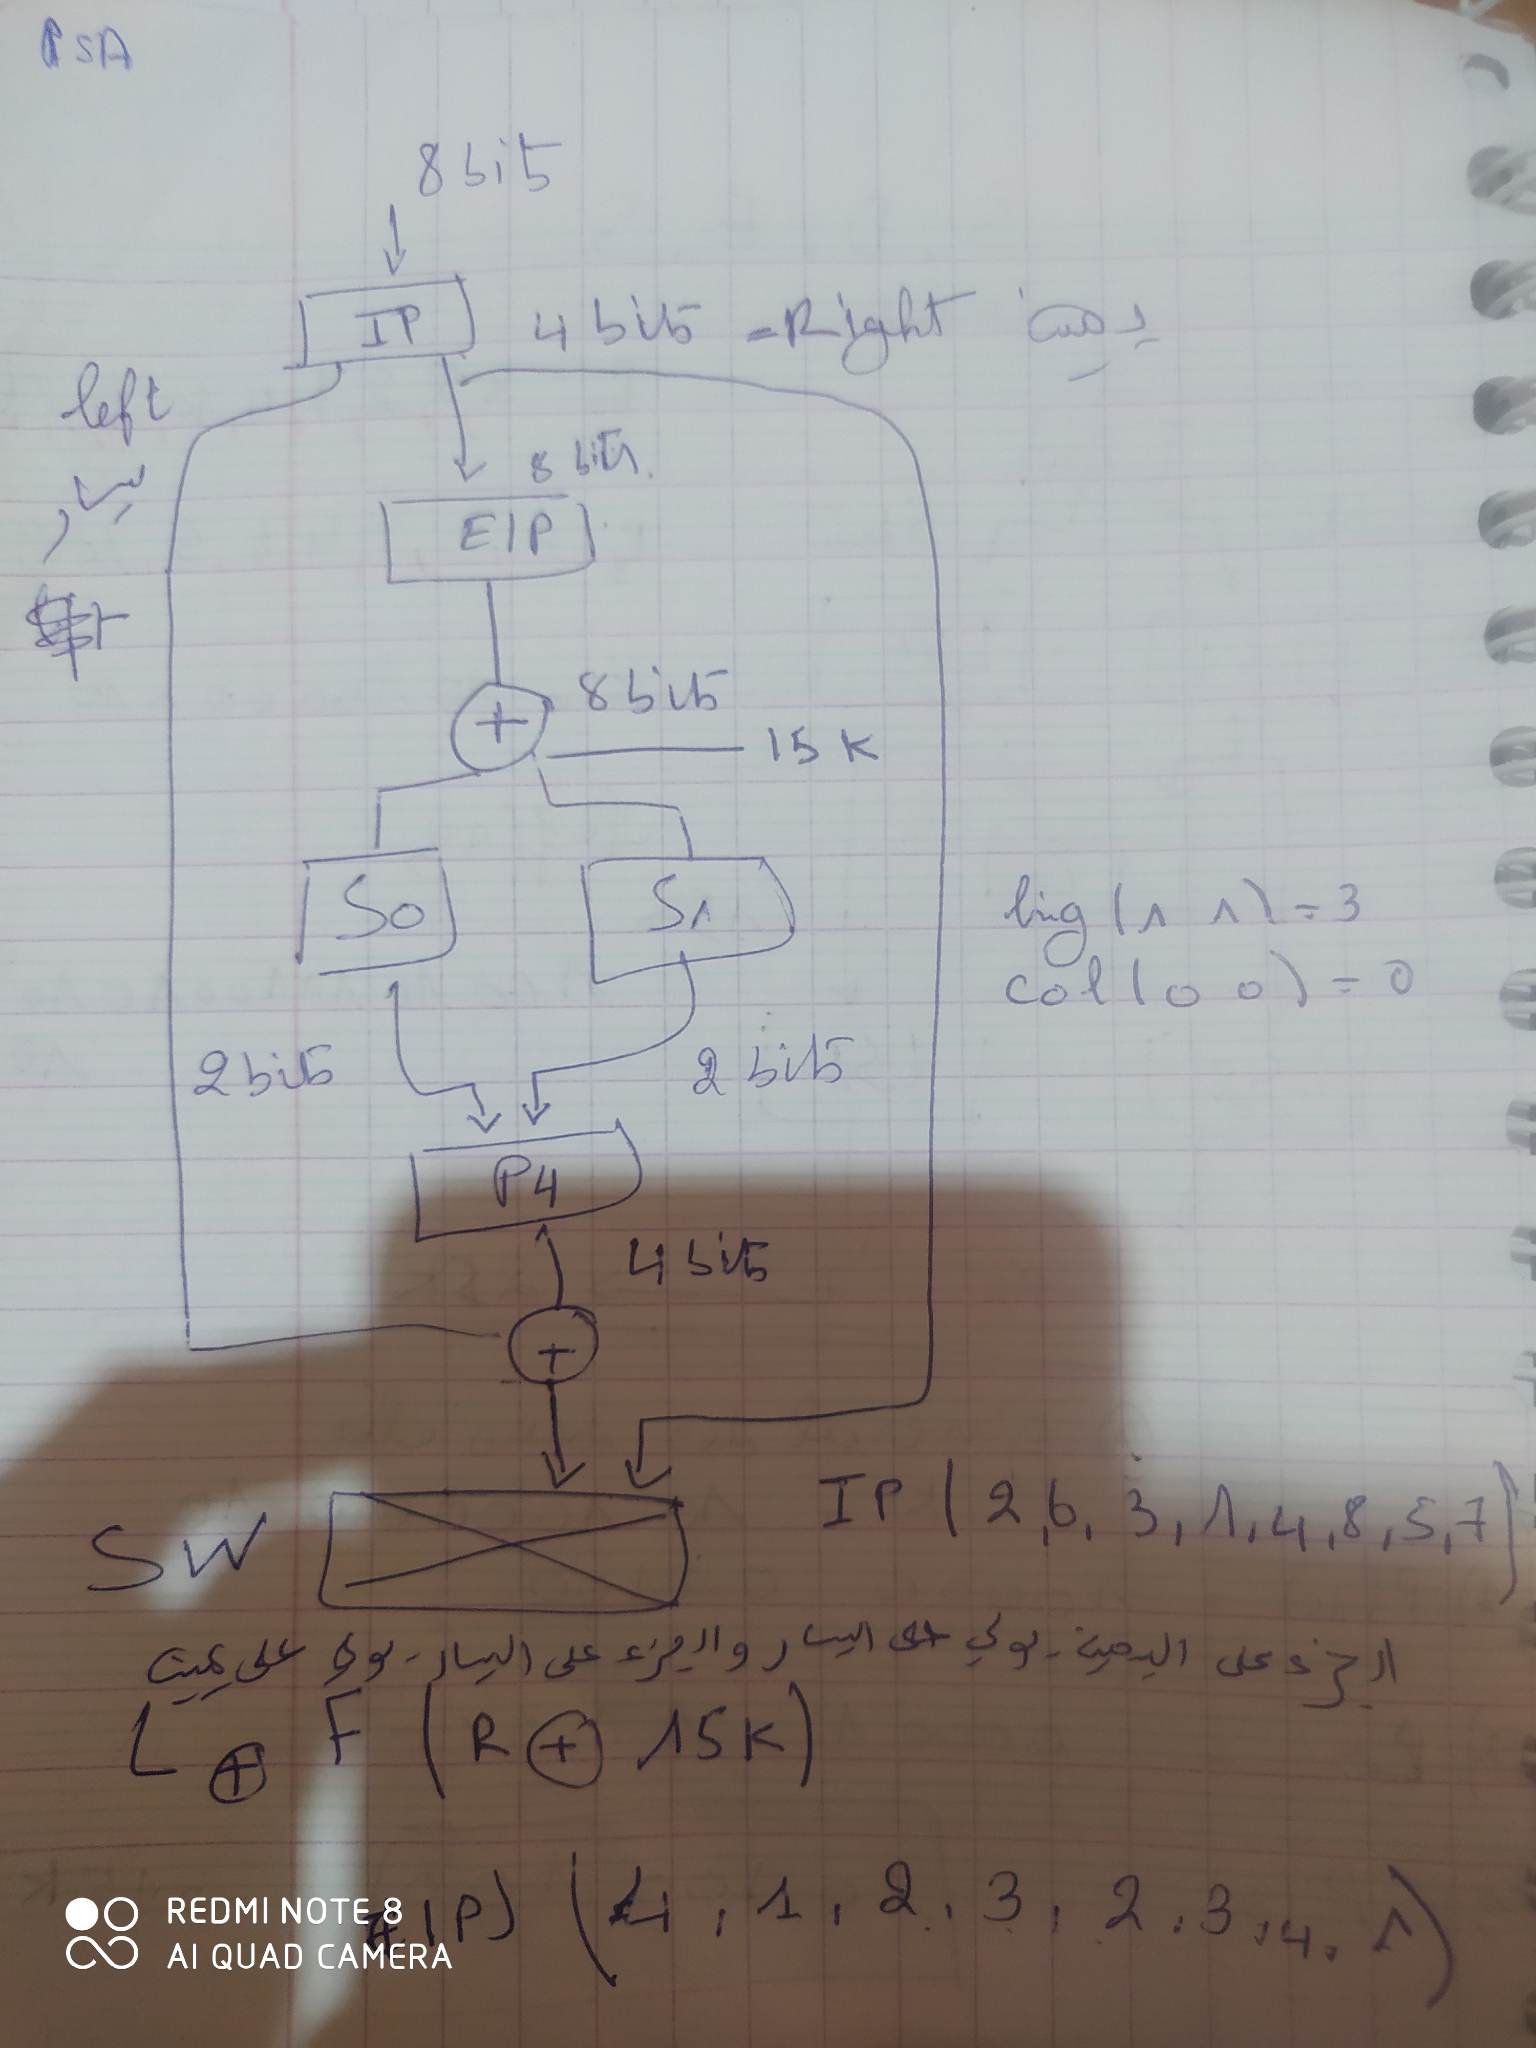 PSA
8 bits
IP
4 bits = Right يمين
left
يسار
8 bits.
E/P
+
8 bits
15 K
S0
S1
lig (1 1) = 3
col (0 0) = 0
2 bits
2 bits
P4
4 bits
+
SW
IP (2, 6, 3, 1, 4, 8, 5, 7)
الجزء على اليمين يولي على اليسار والجزء على اليسار يولي على يمين
L ⊕ F (R ⊕ 15K)
E/P) (4, 1, 2, 3, 2, 3, 4, 1)
REDMI NOTE 8
AI QUAD CAMERA